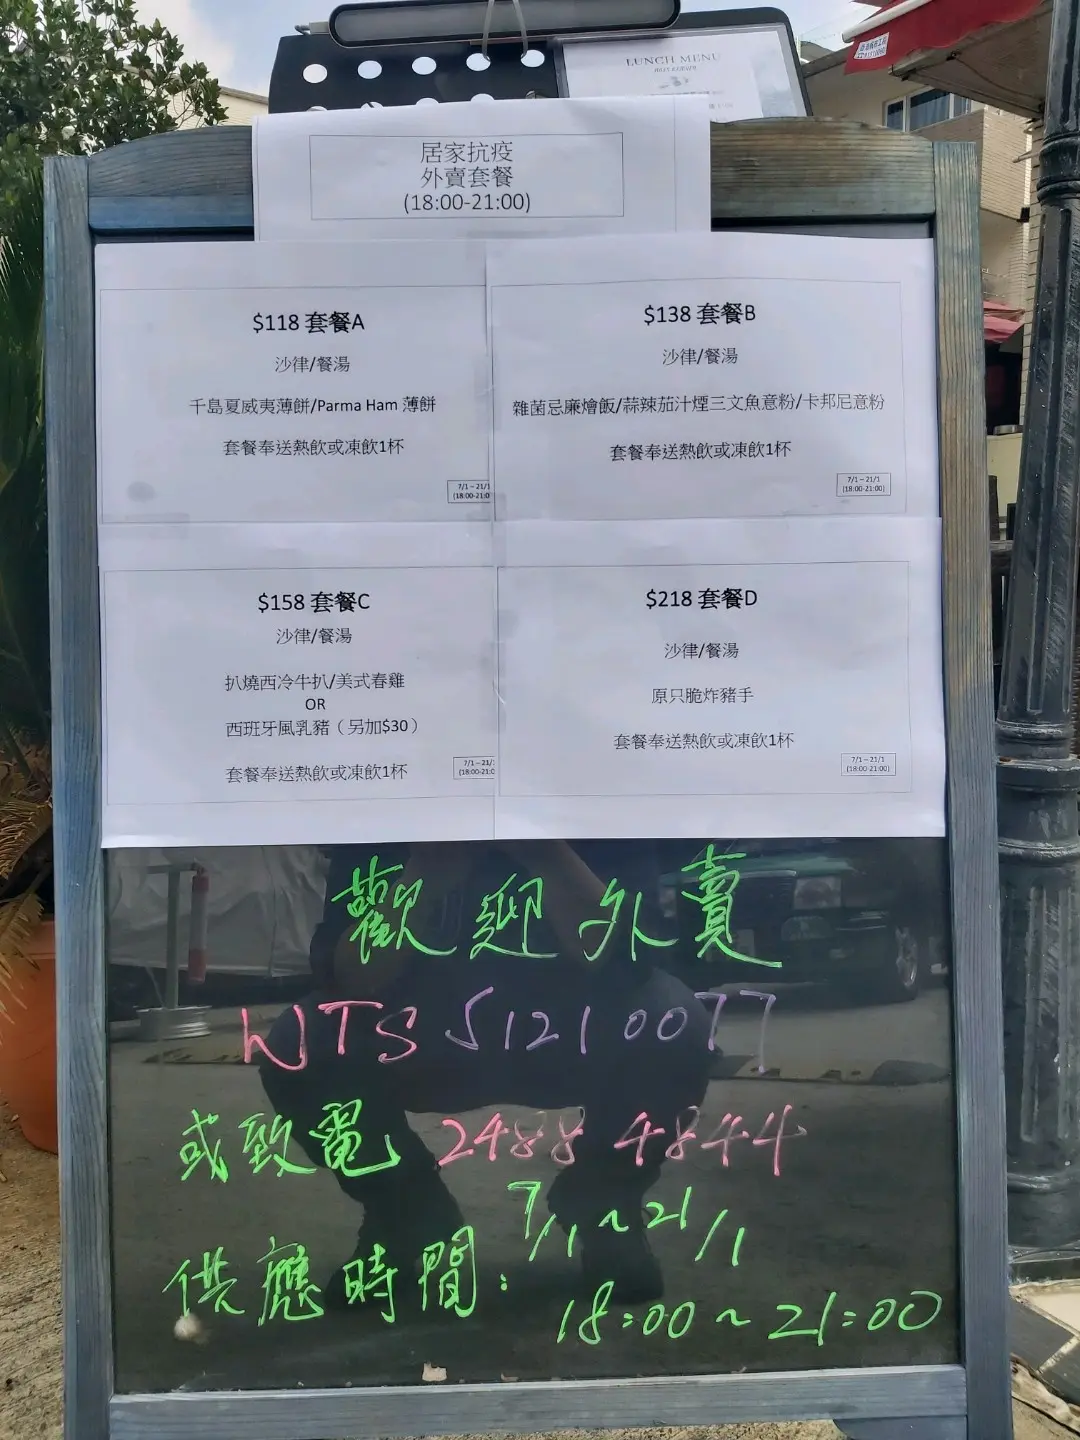 LUNCH MENU
居家抗疫
外賣套餐
(18:00-21:00)
$118 套餐A
沙律/餐湯
千島夏威夷薄餅/Parma Ham 薄餅
套餐奉送熱飲或凍飲1杯
7/1 – 21/1
(18:00-21:0
$138 套餐B
沙律/餐湯
雜菌忌廉燴飯/蒜辣茄汁煙三文魚意粉/卡邦尼意粉
套餐奉送熱飲或凍飲1杯
7/1 – 21/1
(18:00-21:00)
$158 套餐C
沙律/餐湯
扒燒西冷牛扒/美式春雞
OR
西班牙風乳豬（另加$30）
套餐奉送熱飲或凍飲1杯
7/1 – 21/1
(18:00-21:0
$218 套餐D
沙律/餐湯
原只脆炸豬手
套餐奉送熱飲或凍飲1杯
7/1 – 21/1
(18:00-21:00)
歡迎外賣
WTS 51210077
或致電 2488 4844
供應時間: 7/1 ~ 21/1
18:00 ~ 21:00